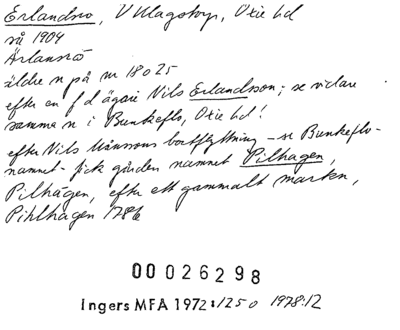 Erlandsro, V Klagstorp, Oxie hd
så 1904
Ärlansró
äldre n på nr 18 o 25
efter en f d ägare Nils Erlandsson; se vidare
samma n i Bunkeflo, Oxie hd!
efter Nils Månssons bortflyttning – se Bunkeflo-
namnet – fick gården namnet Pilhagen,
Pilhägen, efter ett gammalt marken,
Pihlhagen 1786
00026298
Ingers MFA 1972:1250 1978:12